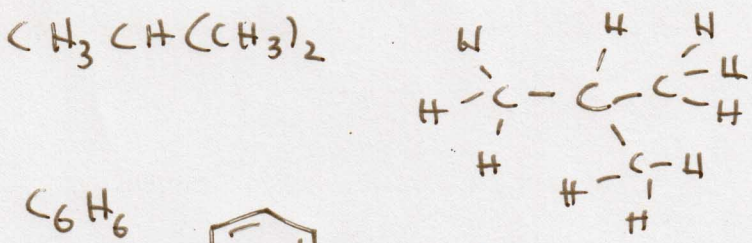 CH3CH(CH3)2
H H H
H - C - C - C - H
H H
H - C - H
H
C6H6